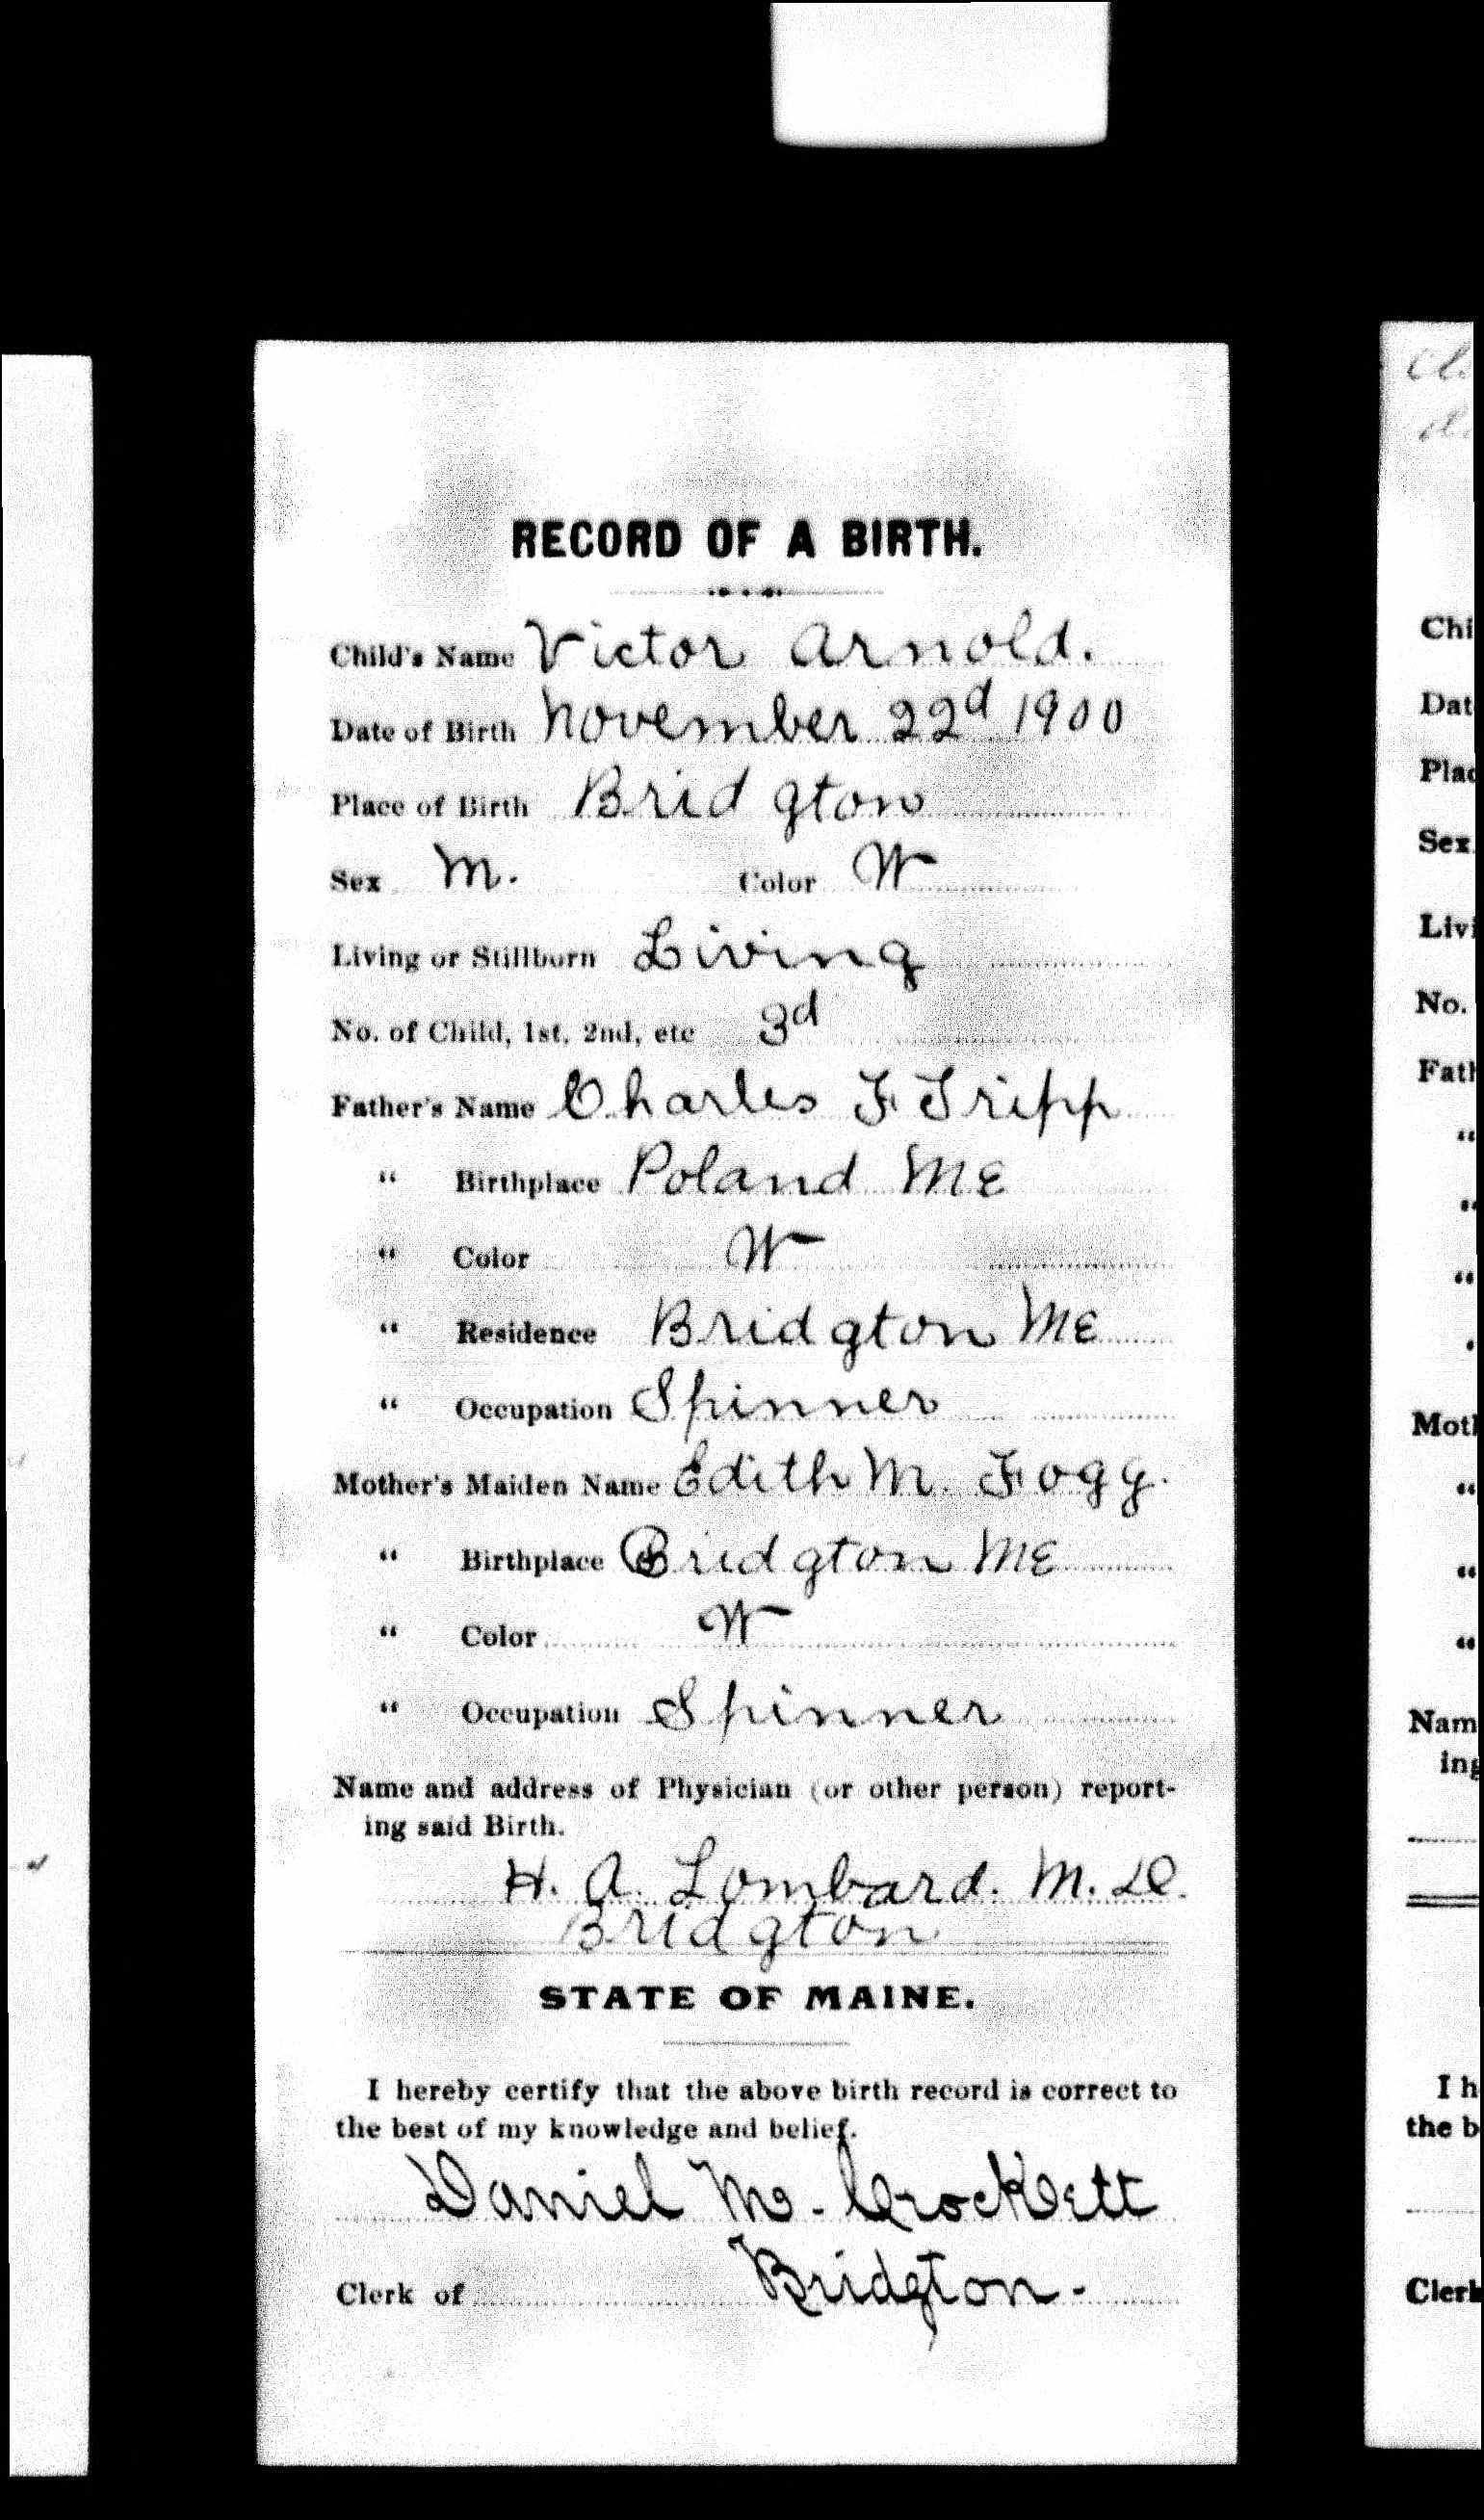 RECORD OF A BIRTH.
Child's Name Victor Arnold.
Date of Birth November 22d 1900
Place of Birth Bridgton
Sex M. Color W
Living or Stillborn Living
No. of Child, 1st, 2nd, etc 3d
Father's Name Charles F Tripp
" Birthplace Poland ME
" Color W
" Residence Bridgton ME
" Occupation Spinner
Mother's Maiden Name Edith M. Fogg.
" Birthplace Bridgton ME
" Color W
" Occupation Spinner
Name and address of Physician (or other person) report-
ing said Birth.
H. A. Lombard. M. D.
Bridgton
STATE OF MAINE.
I hereby certify that the above birth record is correct to
the best of my knowledge and belief.
Daniel M. Crockett
Clerk of Bridgton.
Chi
Dat
Plac
Sex
Livi
No.
Fath
"
"
"
"
Moth
"
"
"
Nam
ing
I h
the b
Clerk